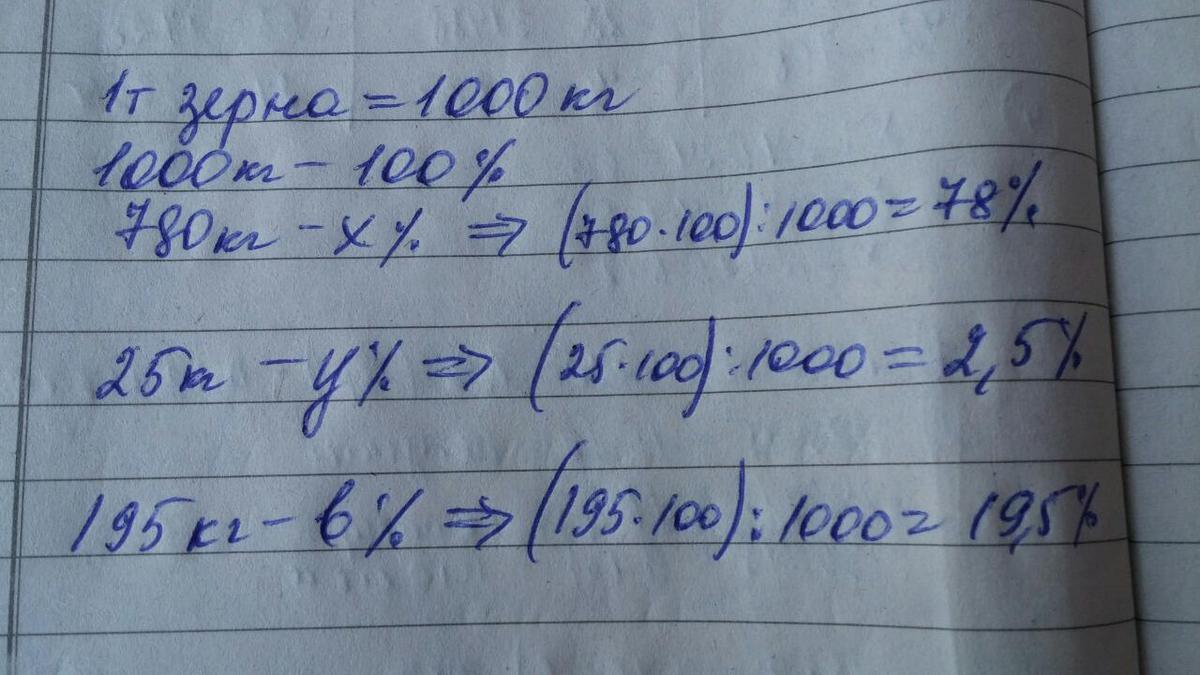 1т зерна = 1000 кг
1000кг - 100%
780кг - x% ⇒ (780·100):1000 = 78%
25кг - y% ⇒ (25·100):1000 = 2,5%
195кг - в% ⇒ (195·100):1000 = 19,5%